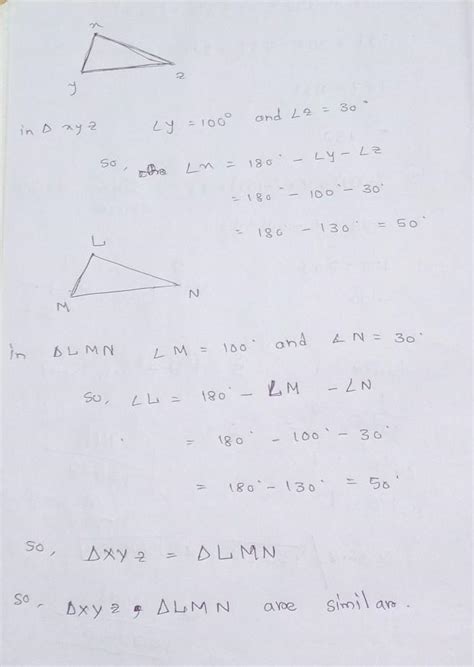 x
y
z
in Δ xyz ∠y = 100° and ∠z = 30°
So, ∠x = 180° - ∠y - ∠z
= 180° - 100° - 30°
= 180 - 130° = 50°
L
M
N
in ΔLMN ∠M = 100° and ∠N = 30°
So, ∠L = 180° - ∠M - ∠N
= 180° - 100° - 30°
= 180° - 130° = 50°
So, Δxyz = ΔLMN
So, Δxyz, ΔLMN are similar.